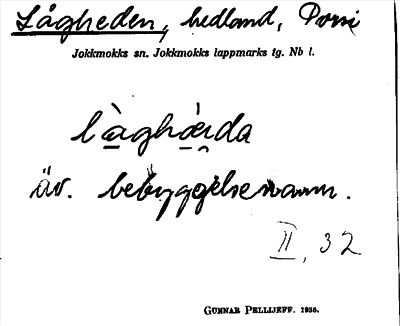 Lågheden, hedland, Porsi
Jokkmokks sn. Jokkmokks lappmarks tg. Nb l.
làghæ̀ida
äv. bebyggelsenamn.
II, 32
GUNNAR PELLIJEFF. 1935.